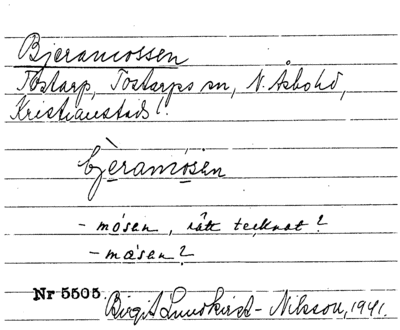 Bjeramossen
Tostarp, Tostarps sn, N. Åsbo hd,
Kristianstads l.
bjèramósen
- mósen, rätt tecknat?
- mɷsen?
Nr 5505 Birgit Lundkvist-Nilsson, 1941.